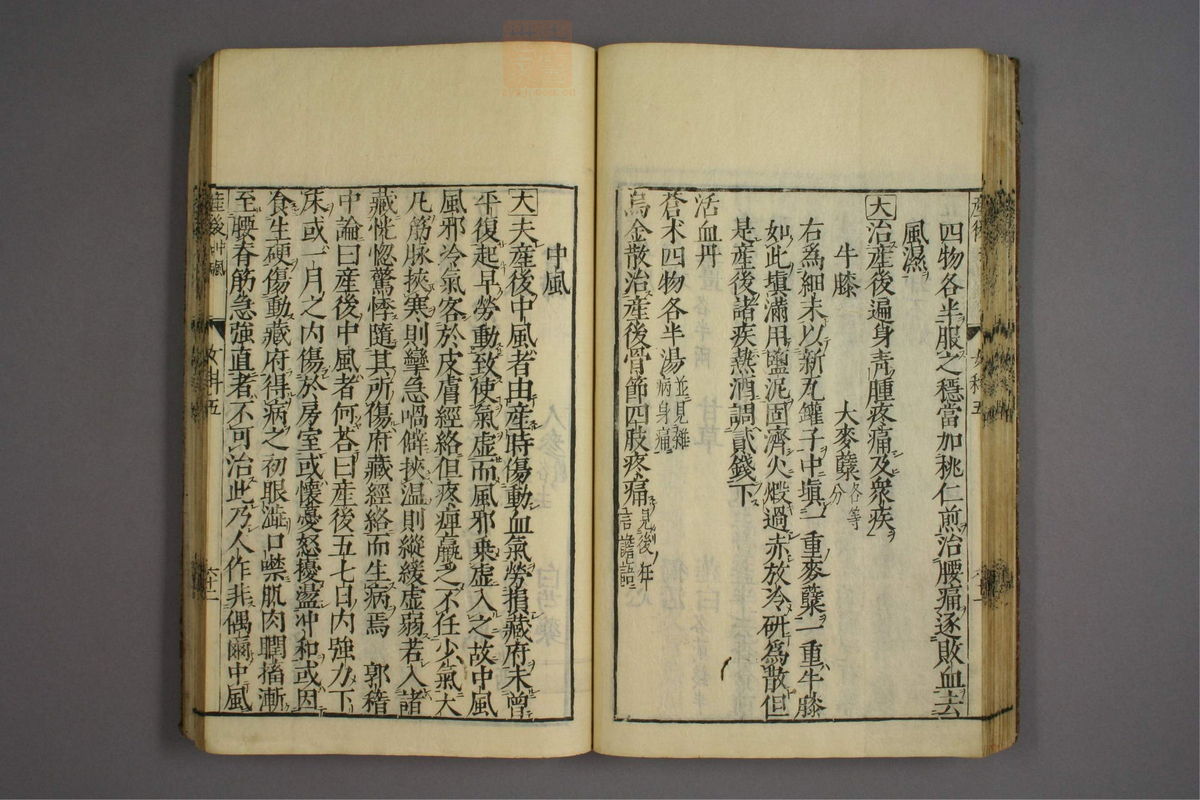 四物各半服之穩當加桃仁煎治腰痛逐敗血去
風濕
大治産後遍身靑腫疼痛及衆疾
牛膝 大麥蘗各等分
右爲細末以新瓦罐子中塡一重麥蘗一重牛膝
如此塡滿用鹽泥固濟火煅過赤放冷研爲散但
是産後諸疾熱酒調貳錢下
活血丹
蒼朮四物各半湯並見雜病身痛
烏金散治産後骨節四肢疼痛見後狂言譫語
中風
大夫産後中風者由産時傷動血氣勞損藏府未曾
平復起早勞動致使氣虚而風邪乗虚入之故中風
風邪冷氣客於皮膚經絡但疼痺羸乏不任少氣大
凡筋脉挾寒則攣急喎僻挾温則縱緩虚弱若入諸
藏恍惚驚悸隨其所傷府藏經絡而生病焉 郭稽
中論曰産後中風者何荅曰産後五七日内強力下
床或一月之内傷於房室或懷憂怒擾蕩冲和或因
食生硬傷動藏府得病之初眼澁口噤肌肉瞤搐漸
至腰脊筋急強直者不可治此乃人作非偶爾中風
産後中風 女科五 六十二